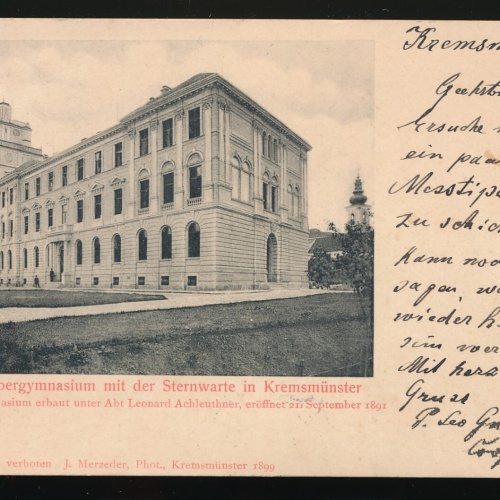 Kremsm
Geehrt
Ersuche
ein paar
Messtip
zu schi
kann no
sagen, w
wieder h
Mit herz
Gruss
P. Leo
bergymnasium mit der Sternwarte in Kremsmünster
asium erbaut unter Abt Leonard Achleuthner, eröffnet 21. September 1891
verboten J. Merzeder, Phot., Kremsmünster 1899